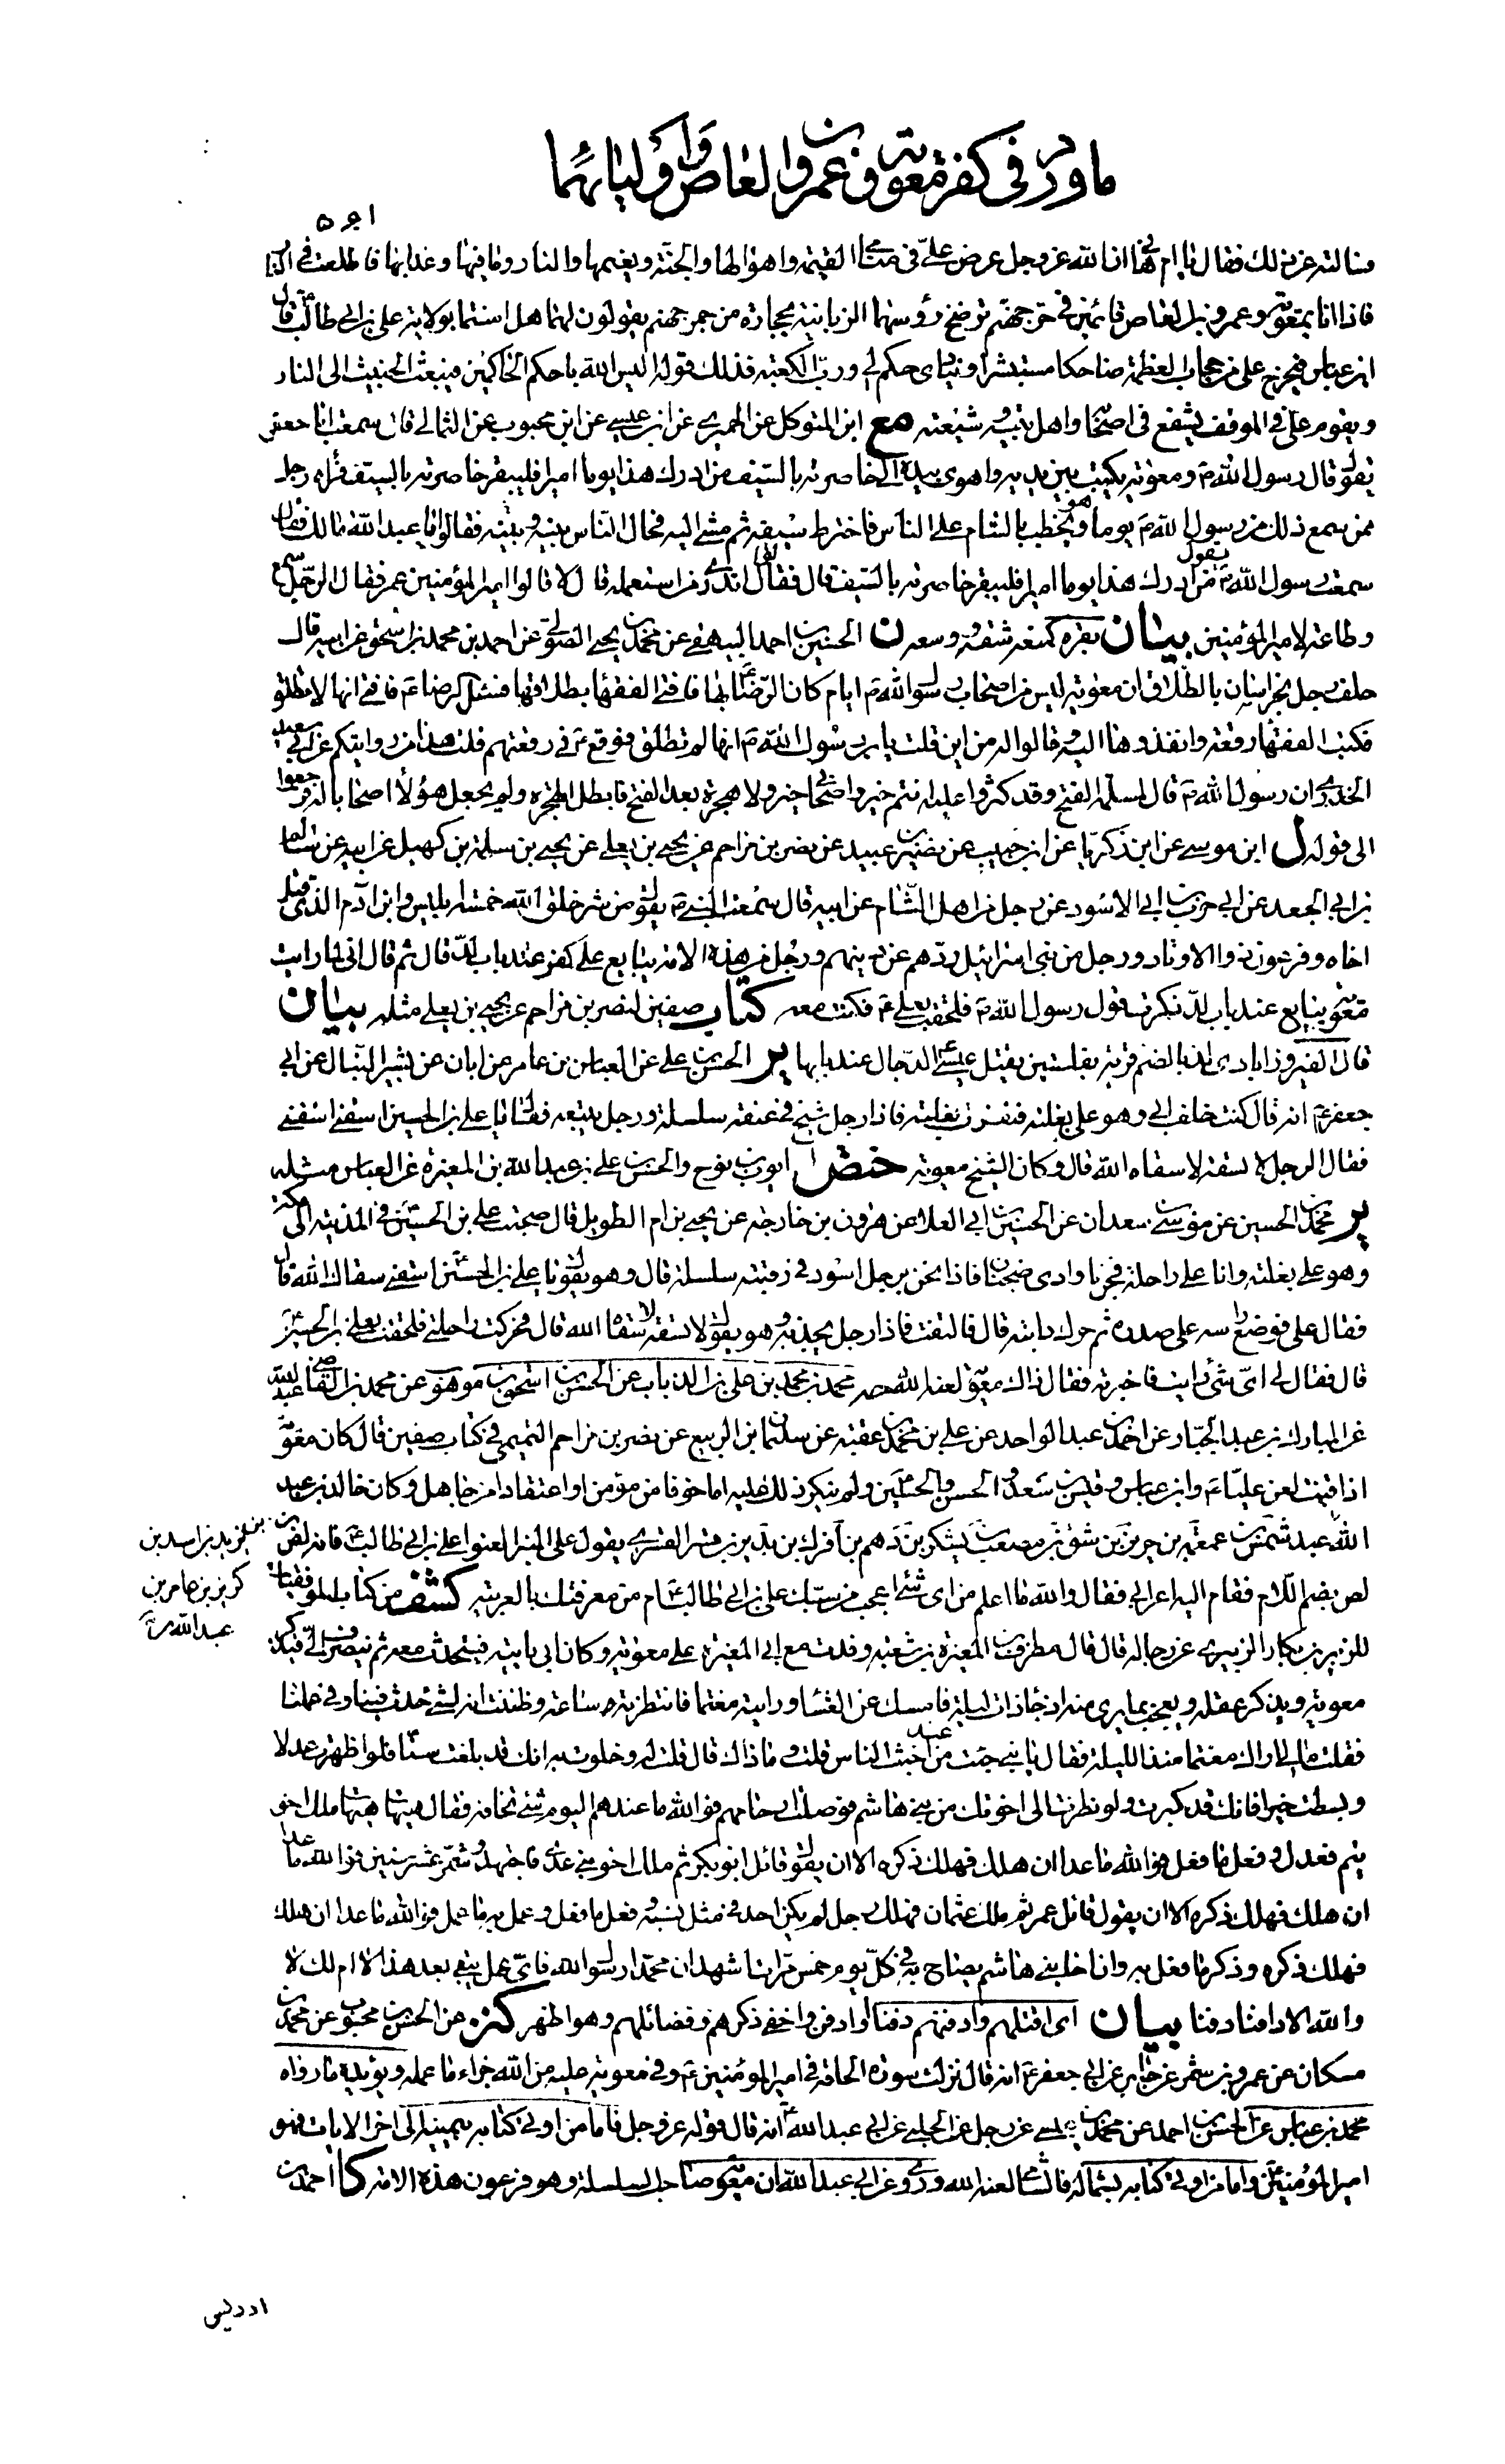 ما ورد في كفر معوية و عمرو بن العاص و اوليائهما
۵۶۱
فسالته عن ذلك فقال يا ام هاني ان الله عز وجل عرض علي في منامي القيمة واهوالها والجنة ونعيمها والنار وما فيها وعذابها فاطلعت في النار
فاذا انا بمعوية وعمرو بن العاص قائمين في حر جهنم ترضخ رؤسهما الزبانية بحجارة من جمر جهنم يقولون لهما هل امنتما بولاية علي بن ابي طالب ع قال
ابن عباس فيخرج علي من حجاب العظمة ضاحكا مستبشرا وينادي حكم لي ورب الكعبة فذلك قوله اليس الله باحكم الحاكمين فينبعث الخبيث الى النار
ويقوم علي في الموقف يشفع في اصحابه واهل بيته وشيعته مع ابن المتوكل عن الحميري عن ابن عيسى عن ابن محبوب عن الثمالي قال سمعت ابا جعفر
يقول قال رسول الله ص ومعوية يكتب بين يديه واهوى بيده الى خاصرته بالسيف من ادرك هذا يوما اميرا فليبقر خاصرته بالسيف فراه رجل
ممن سمع ذلك من رسول الله ص يوما وهو يخطب بالشام على الناس فاخترط سيفه ثم مشى اليه فحال الناس بينه وبينه فقالوا يا عبد الله مالك فقال
سمعت رسول الله ص يقول من ادرك هذا يوما اميرا فليبقر خاصرته بالسيف قال فقالوا اتدري من استعمله قال لا قالوا امير المؤمنين عمر فقال الرجل سمعا
وطاعة لامير المؤمنين بيان بقره كمنعه شقه ووسعه ن الحسين بن احمد البيهقي عن محمد بن يحيى الصولي عن احمد بن محمد بن اسحق عن ابيه قال
حلف رجل بخراسان بالطلاق ان معوية ليس من اصحاب رسول الله ص ايام كان الرضا ع بها فافتى الفقهاء بطلاقها فسئل الرضا ع فافتى انها لا تطلق
فكتب الفقهاء رقعة وانفذوها اليه وقالوا له من اين قلت يا بن رسول الله ص انها لم تطلق فوقع ع في رقعتهم قلت هذا من روايتكم عن ابي سعيد
الخدري ان رسول الله ص قال لمسلمة الفتح وقد كثروا عليه انتم خير واصحابي خير ولا هجرة بعد الفتح فابطل الهجرة ولم يجعل هؤلاء اصحابا له فرجعوا
الى قوله ل ابن موسى عن ابن زكريا عن ابن حبيب عن نضر بن عبيد عن نصر بن مزاحم عن يحيى بن يعلى عن يحيى بن سلمة بن كهيل عن ابيه عن سالم
بن ابي الجعد عن ابي حرب بن ابي الاسود عن رجل من اهل الشام عن ابيه قال سمعت النبي ص يقول من شر خلق الله خمسة ابليس وابن ادم الذي قتل
اخاه وفرعون ذو الاوتاد ورجل من بني اسرائيل ردهم عن دينهم ورجل من هذه الامة يبايع على كفر عند باب لد قال ثم قال اني لما رايت
معوية يبايع عند باب لد ذكرت قول رسول الله ص فلحقت بعلي ع فكنت معه كتاب صفين لنصر بن مزاحم عن يحيى بن يعلى مثله بيان
قال الفيروزابادي لد بالضم قرية بفلسطين يقتل عيسى ع الدجال عند بابها ير الحسن بن علي عن العباس بن عامر عن ابان عن بشير النبال عن ابي
جعفر ع انه قال كنت خلف ابي وهو على بغلته فنفرت بغلته فاذا رجل شيخ في عنقه سلسلة ورجل يتبعه فقال يا علي بن الحسين اسقني اسقني
فقال الرجل لا تسقه لا سقاه الله قال وكان الشيخ معوية ختص ايوب بن نوح والحسن بن علي بن عبد الله بن المغيرة عن العباس مثله
ير محمد بن الحسين عن موسى بن سعدان عن الحسين بن ابي العلا عن هرون بن خارجة عن يحيى بن ام الطويل قال صحبت علي بن الحسين ع في المدينة الى مكة
وهو على بغلته وانا على راحلة فجزنا وادي ضجنان فاذا نحن برجل اسود في رقبته سلسلة قال وهو يقول يا علي بن الحسين اسقني سقاك الله قال
فقال علي فوضع راسه على صدره ثم حرك دابته قال فالتفت فاذا رجل يجذبه وهو يقول لا تسقه لا سقاه الله قال فحركت راحلتي فلحقت بعلي بن الحسين
قال فقال لي اي شيء رايت فاخبرته فقال ذاك معوية لعنه الله محمد بن محمد بن علي بن الذباب عن الحسن بن اسحق بن موهوب عن محمد بن القاضي عبد الله
عن المبارك بن عبد الجبار عن احمد بن عبد الواحد عن علي بن محمد بن عقبة عن سليمان بن الربيع عن نصر بن مزاحم التميمي في كتاب صفين قال كان معوية
اذا قنت لعن عليا ع وابن عباس وقيس بن سعد والحسن والحسين ولم ينكر ذلك عليه اما خوفا من مؤمن او اعتقادا من جاهل وكان خالد بن عبد
الله بن يزيد بن اسد بن كريز بن عامر بن عبد الله بن عبد شمس بن غمغمة بن جرير بن شق بن صعب بن يشكر بن دهم بن افرك بن نذير بن قسر القسري يقول على المنبر العنوا علي بن ابي طالب ع فانه لص بن
لص بضم اللام فقام اليه اعرابي فقال والله ما اعلم من اي شيء اعجب من سبك علي بن ابي طالب ع ام من معرفتك بالعربية كشف من كتاب الموفقيات
للزبير بن بكار الزبيري عن رجاله قال قال مطرف بن المغيرة بن شعبة وفدت مع ابي المغيرة على معوية وكان ابي ياتيه فيتحدث معه ثم ينصرف الي فيذكر
معوية ويذكر عقله ويعجب بما يرى منه اذ جاء ذات ليلة فامسك عن العشاء ورايته مغتما فانتظرته ساعة وظننت انه لشيء حدث فينا وفي عملنا
فقلت ما لي اراك مغتما منذ الليلة فقال يا بني جئت من عند اخبث الناس قلت وما ذاك قال قلت له وخلوت به انك قد بلغت سنا فلو اظهرت عدلا
وبسطت خيرا فانك قد كبرت ولو نظرت الى اخوتك من بني هاشم فوصلت ارحامهم فوالله ما عندهم اليوم شيء تخافه فقال هيهات هيهات ملك اخو
تيم فعدل وفعل ما فعل فوالله ما عدا ان هلك فهلك ذكره الا ان يقول قائل ابو بكر ثم ملك اخو بني عدي فاجتهد وشمر عشر سنين فوالله ما عدا
ان هلك فهلك ذكره الا ان يقول قائل عمر ثم ملك عثمان فهلك رجل لم يكن احد في مثل نسبه وفعل ما فعل وعمل به ما عمل فوالله ما عدا ان هلك
فهلك ذكره وذكر ما فعل به وان اخا بني هاشم يصاح به في كل يوم خمس مرات اشهد ان محمدا رسول الله فاي عمل يبقى بعد هذا لا ام لك لا
والله الا دفنا دفنا بيان اي اقتلهم وادفنهم دفنا او ادفن واخفي ذكرهم وفضائلهم وهو اظهر كنز عن الحسن بن محبوب عن محمد بن
مسكان عن عمرو بن شمر عن جابر عن ابي جعفر ع انه قال نزلت سورة الحاقة في امير المؤمنين ع وفي معوية عليه من الله جزاء ما عمله ويؤيده ما رواه
محمد بن عباس عن الحسن بن احمد عن محمد بن عيسى عن رجل عن الحلبي عن ابي عبد الله ع انه قال قوله عز وجل فاما من اوتي كتابه بيمينه الى اخر الايات فهو
امير المؤمنين ع واما من اوتي كتابه بشماله فالشامي لعنه الله وروي عن ابي عبد الله ان معوية صاحب السلسلة وهو فرعون هذه الامة كا احمد بن
ادريس